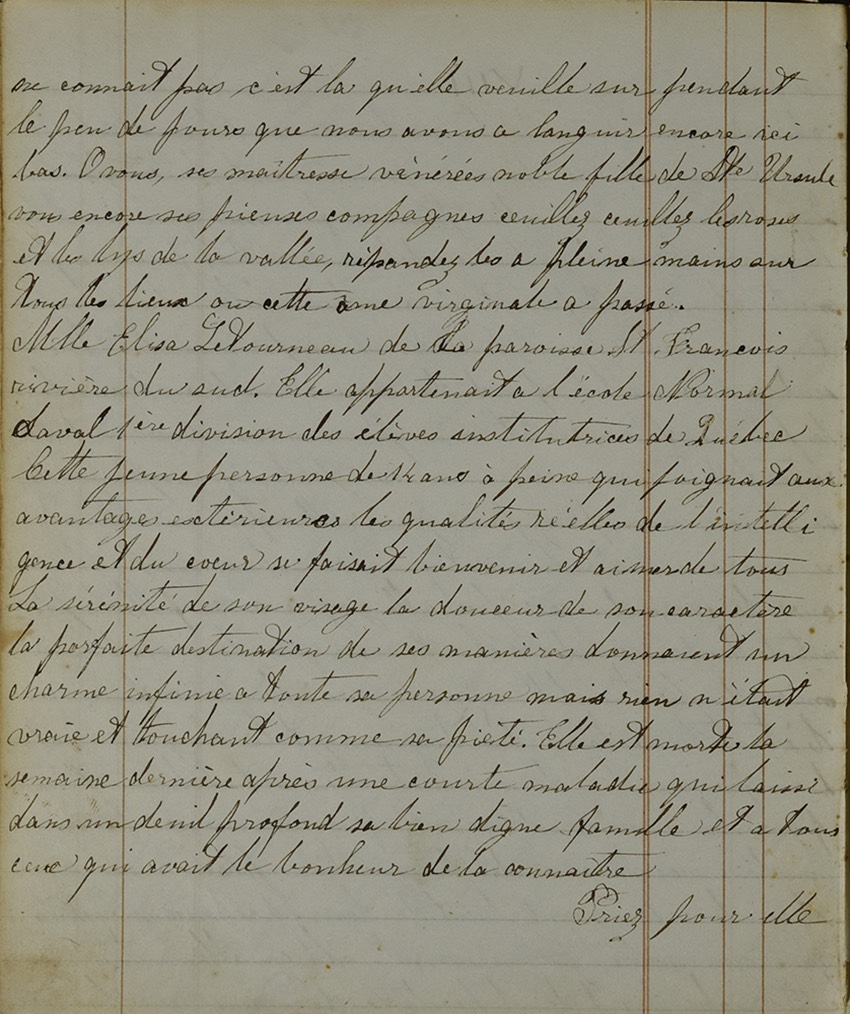 ne connait pas c'est la qu'elle veuille sur pendant
le peu de jours que nous avons a languir encore ici
bas. O vous, ses maîtresse vénérées noble fille de Ste Ursule
vous encore ses pieuses compagnes ceuillez ceuillez les roses
et les lys de la vallée, répandez les a pleine mains sur
tous les lieux ou cette ame virginale a passé.
Mlle Elisa Letourneau de la paroisse St. Francois
rivière du sud. Elle appartenait a l'école Normal
Laval 1ère division des élèves institutrices de Québec
Cette jeune personne de ans à peine qui joignait aux
avantages extérieures les qualités réelles de l'intelli
gence et du coeur se faisait bienvenir et aimer de tous
La sérénité de son visage la douceur de son caractère
la parfaite destination de ses manières donnaient un
charme infinie a toute sa personne mais rien n'était
vraie et touchant comme sa piété. Elle est morte la
semaine dernière après une courte maladie qui laisse
dans un deuil profond sa bien digne famille et a tous
ceux qui avait le bonheur de la connaître
Priez pour elle